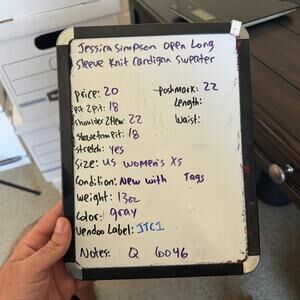 Jessica Simpson Open Long
Sleeve Knit Cardigan Sweater
Price: 20
Poshmark: 22
Pit 2 Pit: 18
Length:
Shoulder 2 Hem: 22
Waist:
Sleeve from Pit: 18
Stretch: yes
Size: US Women's XS
Condition: New with Tags
Weight: 13oz
Color: gray
Vendoo Label: JTC1
Notes: Q 6046